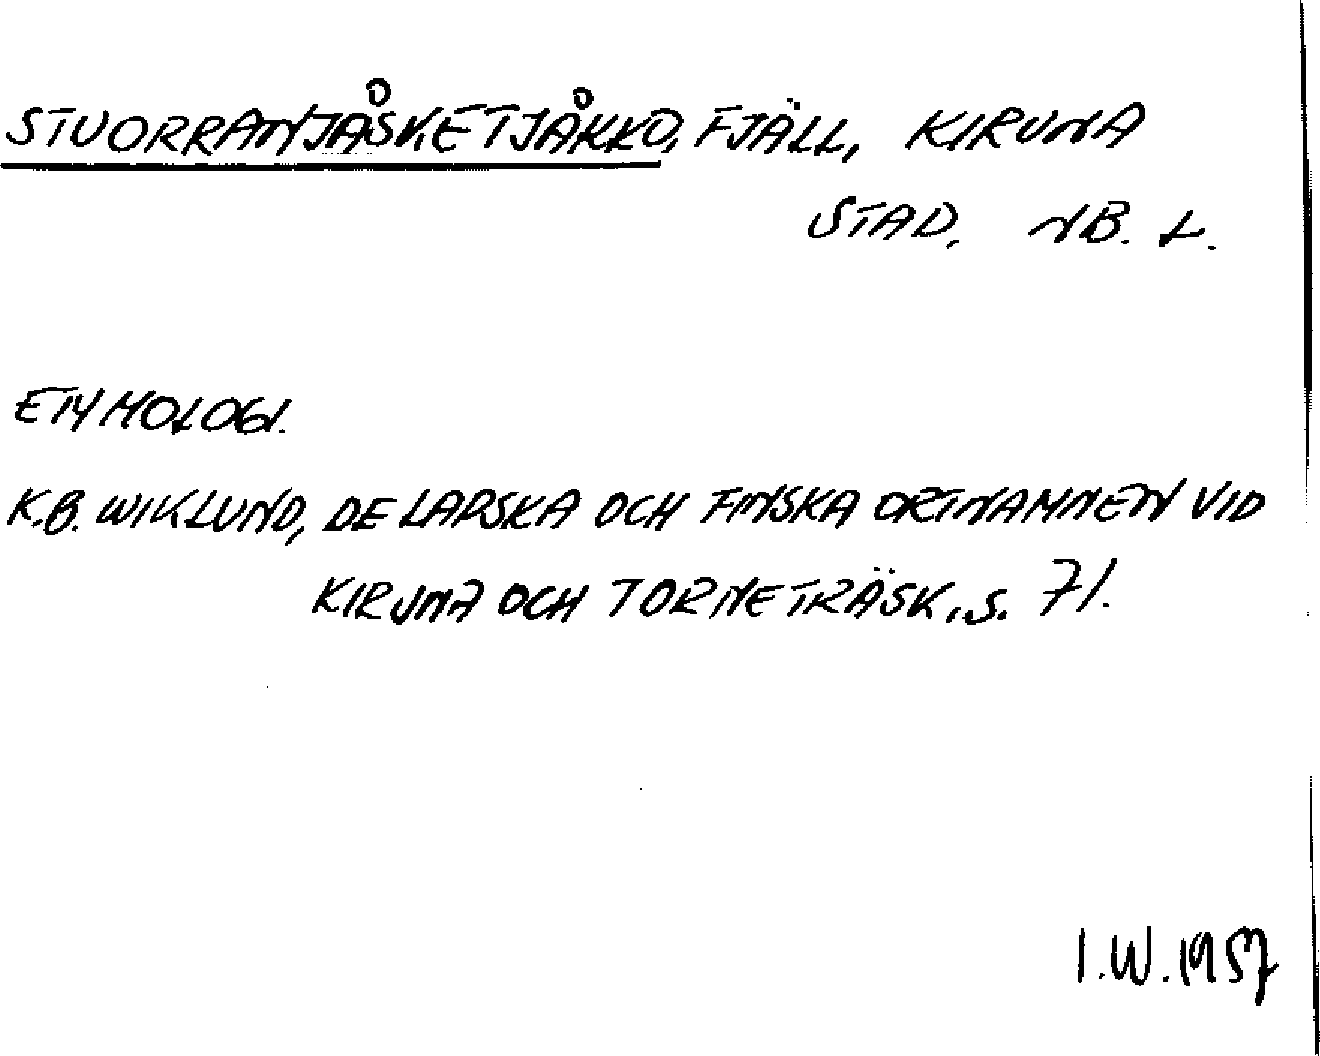 STUORRANJÅSKETJÅKKO, FJÄLL, KIRUNA
STAD, NB. L.
ETYMOLOGI.
K.B. WIKLUND, DE LAPSKA OCH FINSKA ORTNAMNEN VID
KIRUNA OCH TORNETRÄSK, S. 71.
I.W. 1957